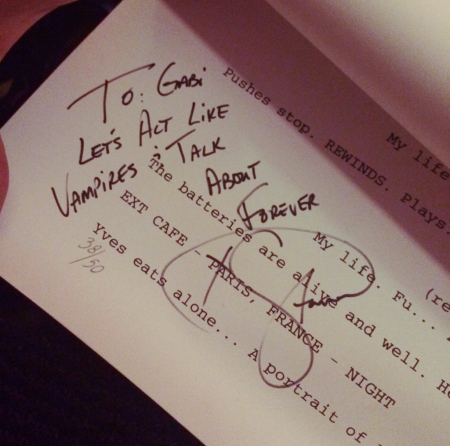 To: Gabi
Let's Act Like
Vampires & Talk
About
Forever
38/50
My life
Pushes stop. REWINDS. Plays.
(re
My life. Fu...
The batteries are alive and well. He
EXT CAFE - PARIS, FRANCE - NIGHT
Yves eats alone... A portrait of